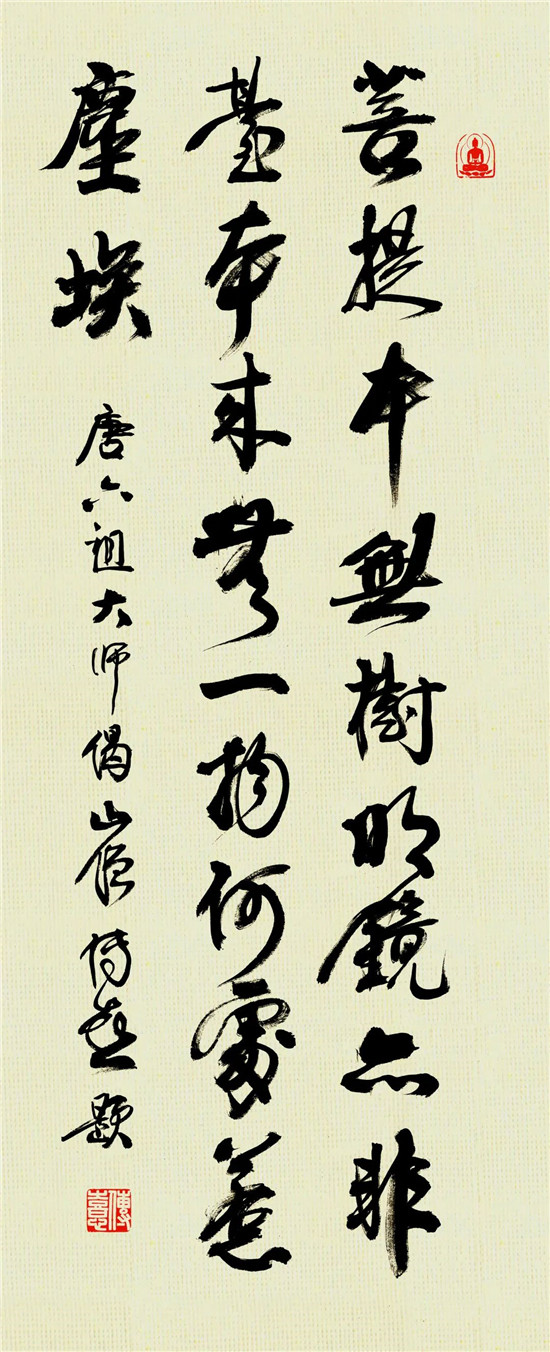 菩提本無樹明鏡亦非
臺本來無一物何處惹
塵埃
唐六祖大师偈山僧傳喜題
傳喜